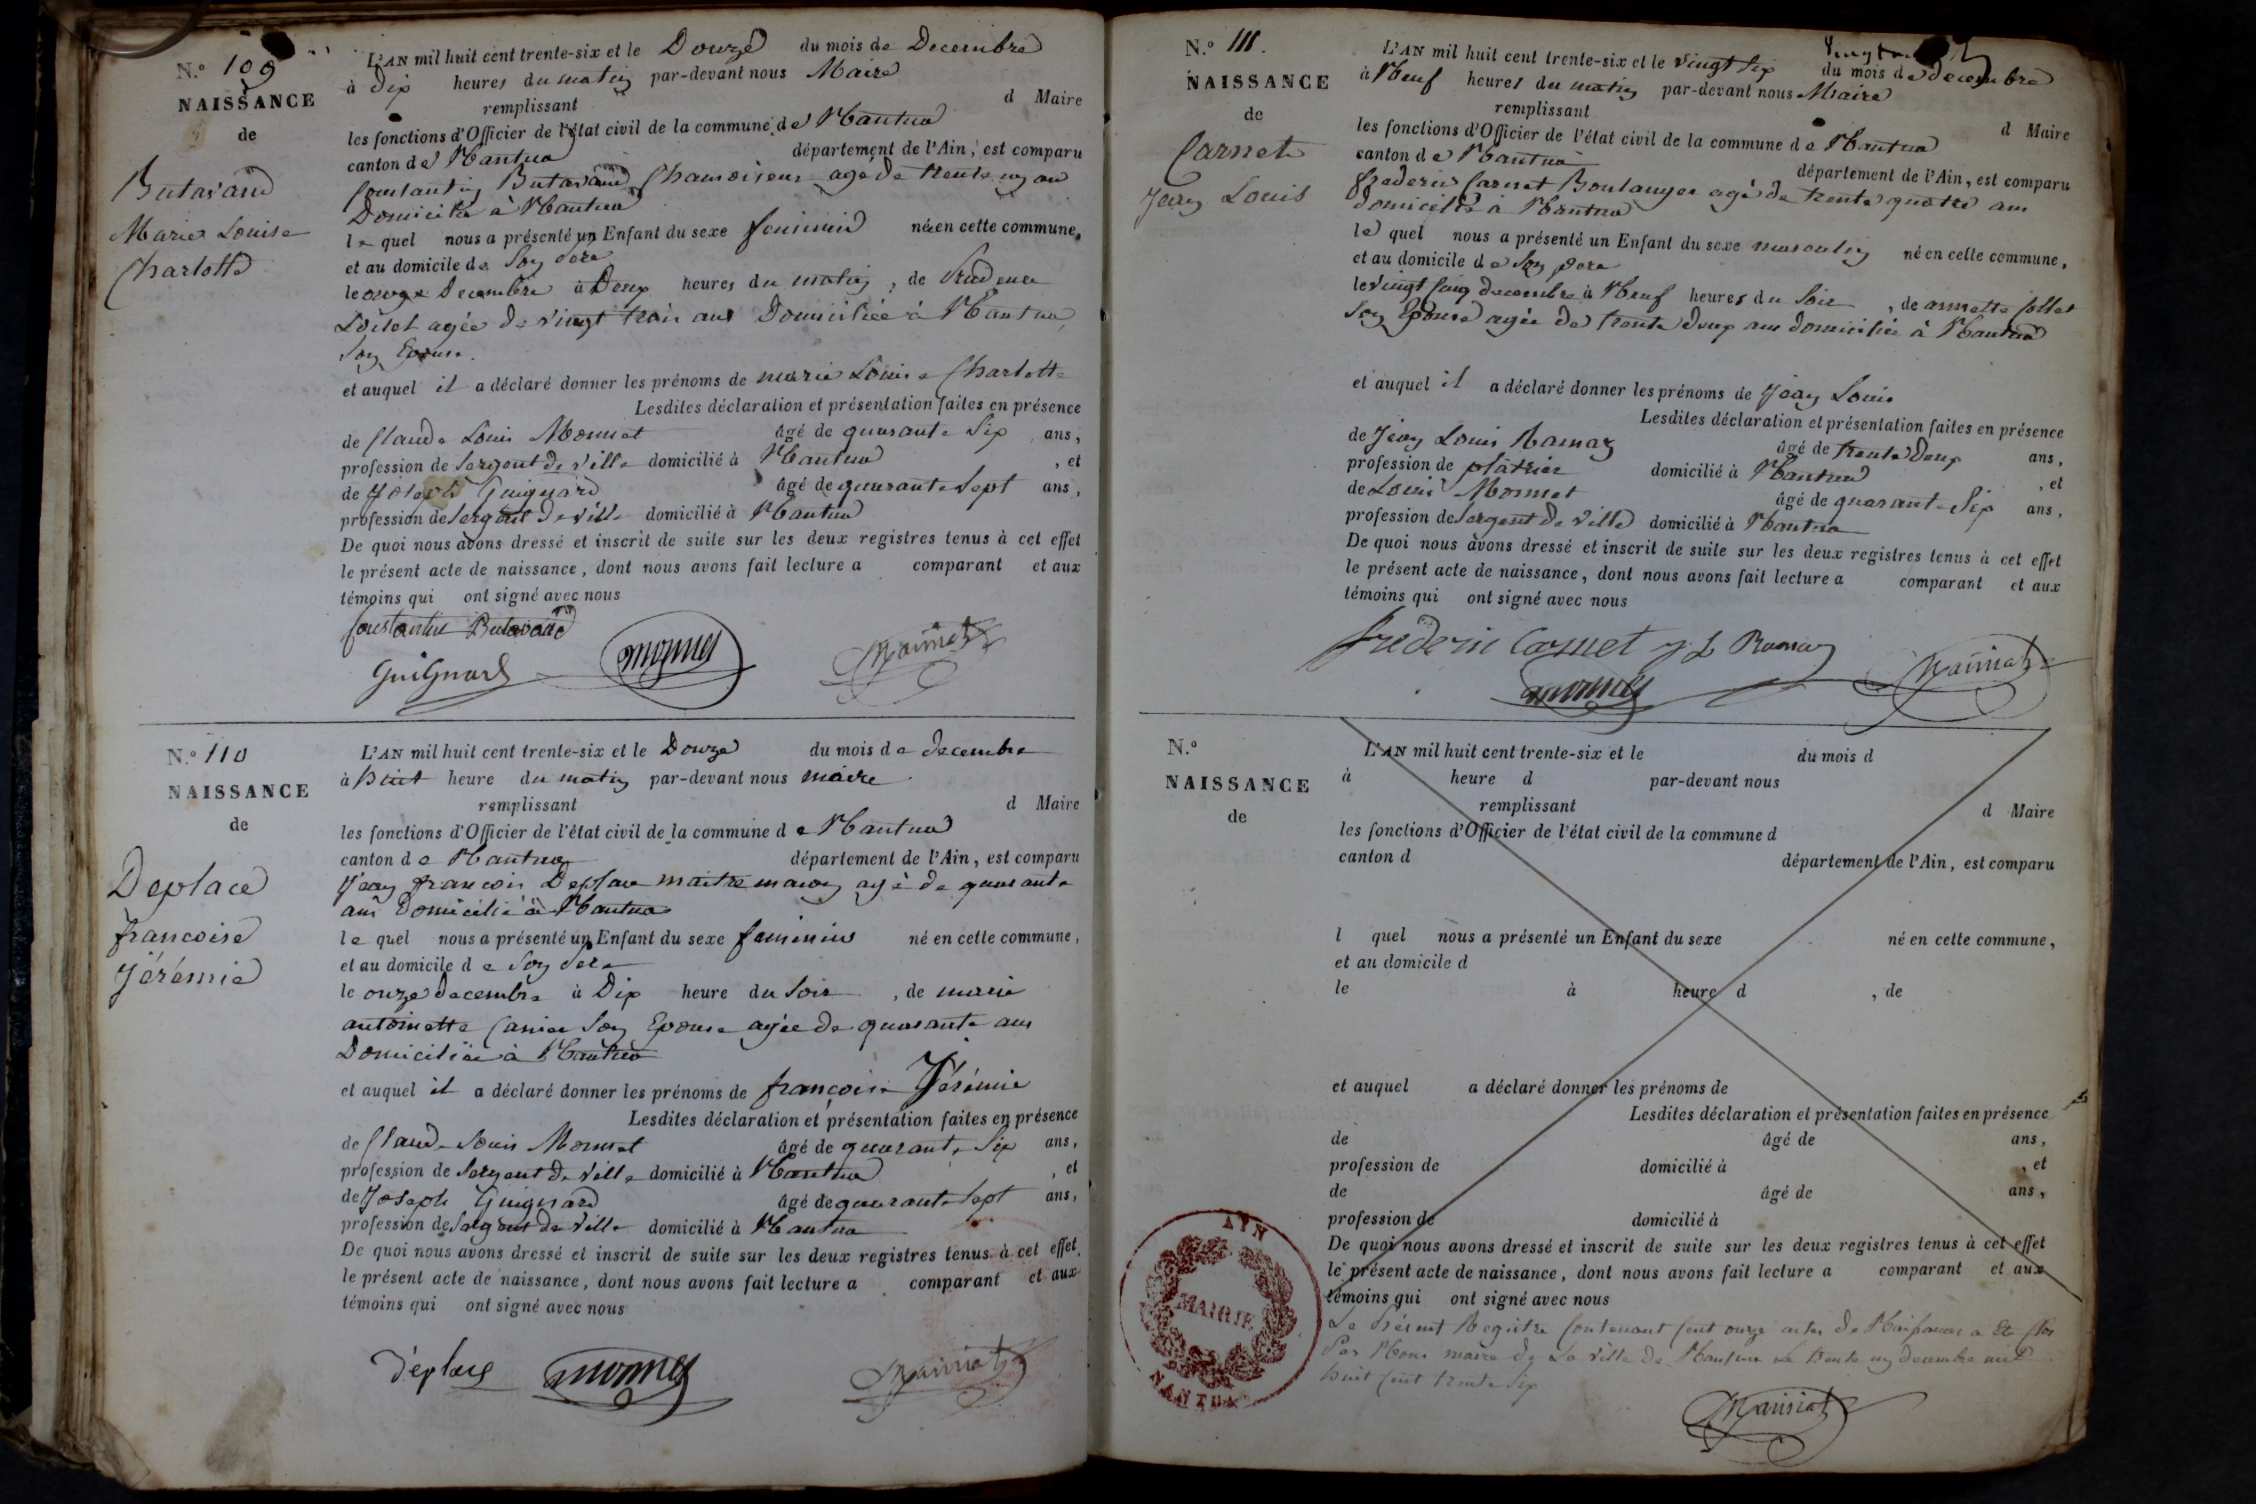 N.º 109
NAISSANCE
de
Butavand
Marie Louise
Charlotte
L'AN mil huit cent trente-six et le Douze du mois de Decembre
à Dix heures du matin par-devant nous Maire
remplissant d Maire
les fonctions d'Officier de l'état civil de la commune de Nantua
canton de Nantua département de l'Ain, est comparu
Constantin Butavand Chamoiseur agé de trente un an
Domicilié à Nantua
le quel nous a présenté un Enfant du sexe feminin née en cette commune,
et au domicile de Son Pere
le onze Decembre à Deux heures du matin, de Prudence
Loilet agée de vingt trois ans Domiciliée à Nantua
Son Epouse.
et auquel il a déclaré donner les prénoms de marie Louise Charlotte
Lesdites déclaration et présentation faites en présence
de Claude Louis Monnet âgé de quarante Six ans,
profession de Sergent de ville domicilié à Nantua, et
de Joseph Guignard âgé de quarante Sept ans,
profession de Sergent de ville domicilié à Nantua
De quoi nous avons dressé et inscrit de suite sur les deux registres tenus à cet effet
le présent acte de naissance, dont nous avons fait lecture a comparant et aux
témoins qui ont signé avec nous
Constantin Butavand
Guignard monnet Maissiat
N.º 110
NAISSANCE
de
Deplace
francoise
Jérémie
L'AN mil huit cent trente-six et le Douze du mois de decembre
à huit heure du matin par-devant nous maire
remplissant d Maire
les fonctions d'Officier de l'état civil de la commune de Nantua
canton de Nantua département de l'Ain, est comparu
Jean francois Deplace maitre macon agé de quarante
ans Domicilié à Nantua
le quel nous a présenté un Enfant du sexe feminin né en cette commune,
et au domicile de Son Pere
le onze decembre à Dix heure du Soir, de marie
antoinette Carrier Son Epouse agée de quarante ans
Domiciliée à Nantua
et auquel il a déclaré donner les prénoms de françoise Jérémie
Lesdites déclaration et présentation faites en présence
de Claude Louis Monnet âgé de quarante Six ans,
profession de Sergent de ville domicilié à Nantua, et
de Joseph Guignard âgé de quarante Sept ans,
profession de Sergent de ville domicilié à Nantua
De quoi nous avons dressé et inscrit de suite sur les deux registres tenus à cet effet
le présent acte de naissance, dont nous avons fait lecture a comparant et aux
témoins qui ont signé avec nous
Déplace monnet Maissiat
N.º 111.
NAISSANCE
de
Carnet
Jean Louis
L'AN mil huit cent trente-six et le vingt six du mois de decembre
à Neuf heures du matin par-devant nous Maire
remplissant d Maire
les fonctions d'Officier de l'état civil de la commune de Nantua
canton de Nantua département de l'Ain, est comparu
frederic Carnet Boulanger agé de trente quatre ans
domicilié à Nantua
le quel nous a présenté un Enfant du sexe masculin né en cette commune,
et au domicile de Son pere
le vingt Cinq decembre à Neuf heures du Soir, de annette Collet
Son Epouse agée de trente deux ans domiciliée à Nantua
et auquel il a déclaré donner les prénoms de Jean Louis
Lesdites déclaration et présentation faites en présence
de Jean Louis Ramaz âgé de trente Deux ans,
profession de plâtrier domicilié à Nantua, et
de Louis Monnet âgé de quarante Six ans,
profession de Sergent de Ville domicilié à Nantua
De quoi nous avons dressé et inscrit de suite sur les deux registres tenus à cet effet
le présent acte de naissance, dont nous avons fait lecture a comparant et aux
témoins qui ont signé avec nous
frederic Carnet J L Ramaz
monnet Maissiat
N.º
NAISSANCE
de
L'AN mil huit cent trente-six et le du mois d
à heure d par-devant nous
remplissant d Maire
les fonctions d'Officier de l'état civil de la commune d
canton d département de l'Ain, est comparu
l quel nous a présenté un Enfant du sexe né en cette commune,
et au domicile d
le à heure d, de
et auquel a déclaré donner les prénoms de
Lesdites déclaration et présentation faites en présence
de âgé de ans,
profession de domicilié à, et
de âgé de ans,
profession de domicilié à
De quoi nous avons dressé et inscrit de suite sur les deux registres tenus à cet effet
le présent acte de naissance, dont nous avons fait lecture a comparant et aux
témoins qui ont signé avec nous
Le Présent Registre Contenant Cent onze actes de Naissances a Eté Clos
Par Nous maire de La ville de Nantua Le trente un decembre mil
huit Cent trente Six
Maissiat
AIN
MAIRIE
NANTUA